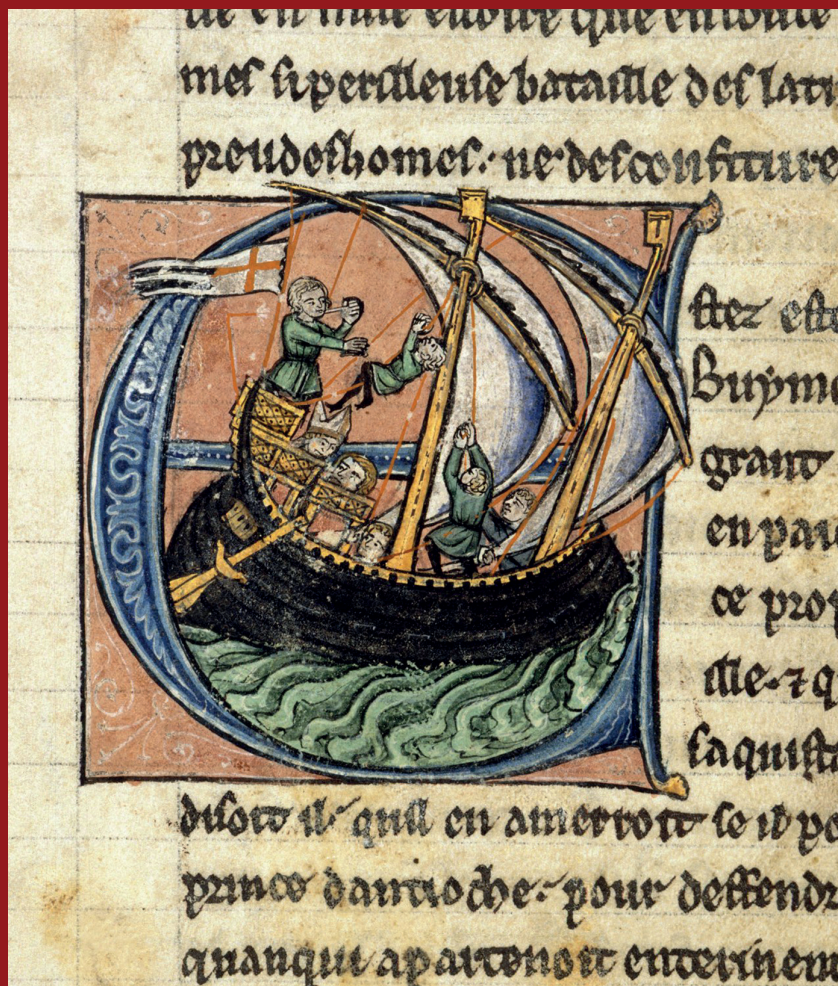 mes si perilleuse bataille des lati
preudeshomes. ne desconfiture
stez esto
Buymo
grant
en pai
ce prop
ille. ⁊ q
disoit il. quil en amerroit se il po
prince dantioche. pour deffendr
quanqui apartenoit enterinem